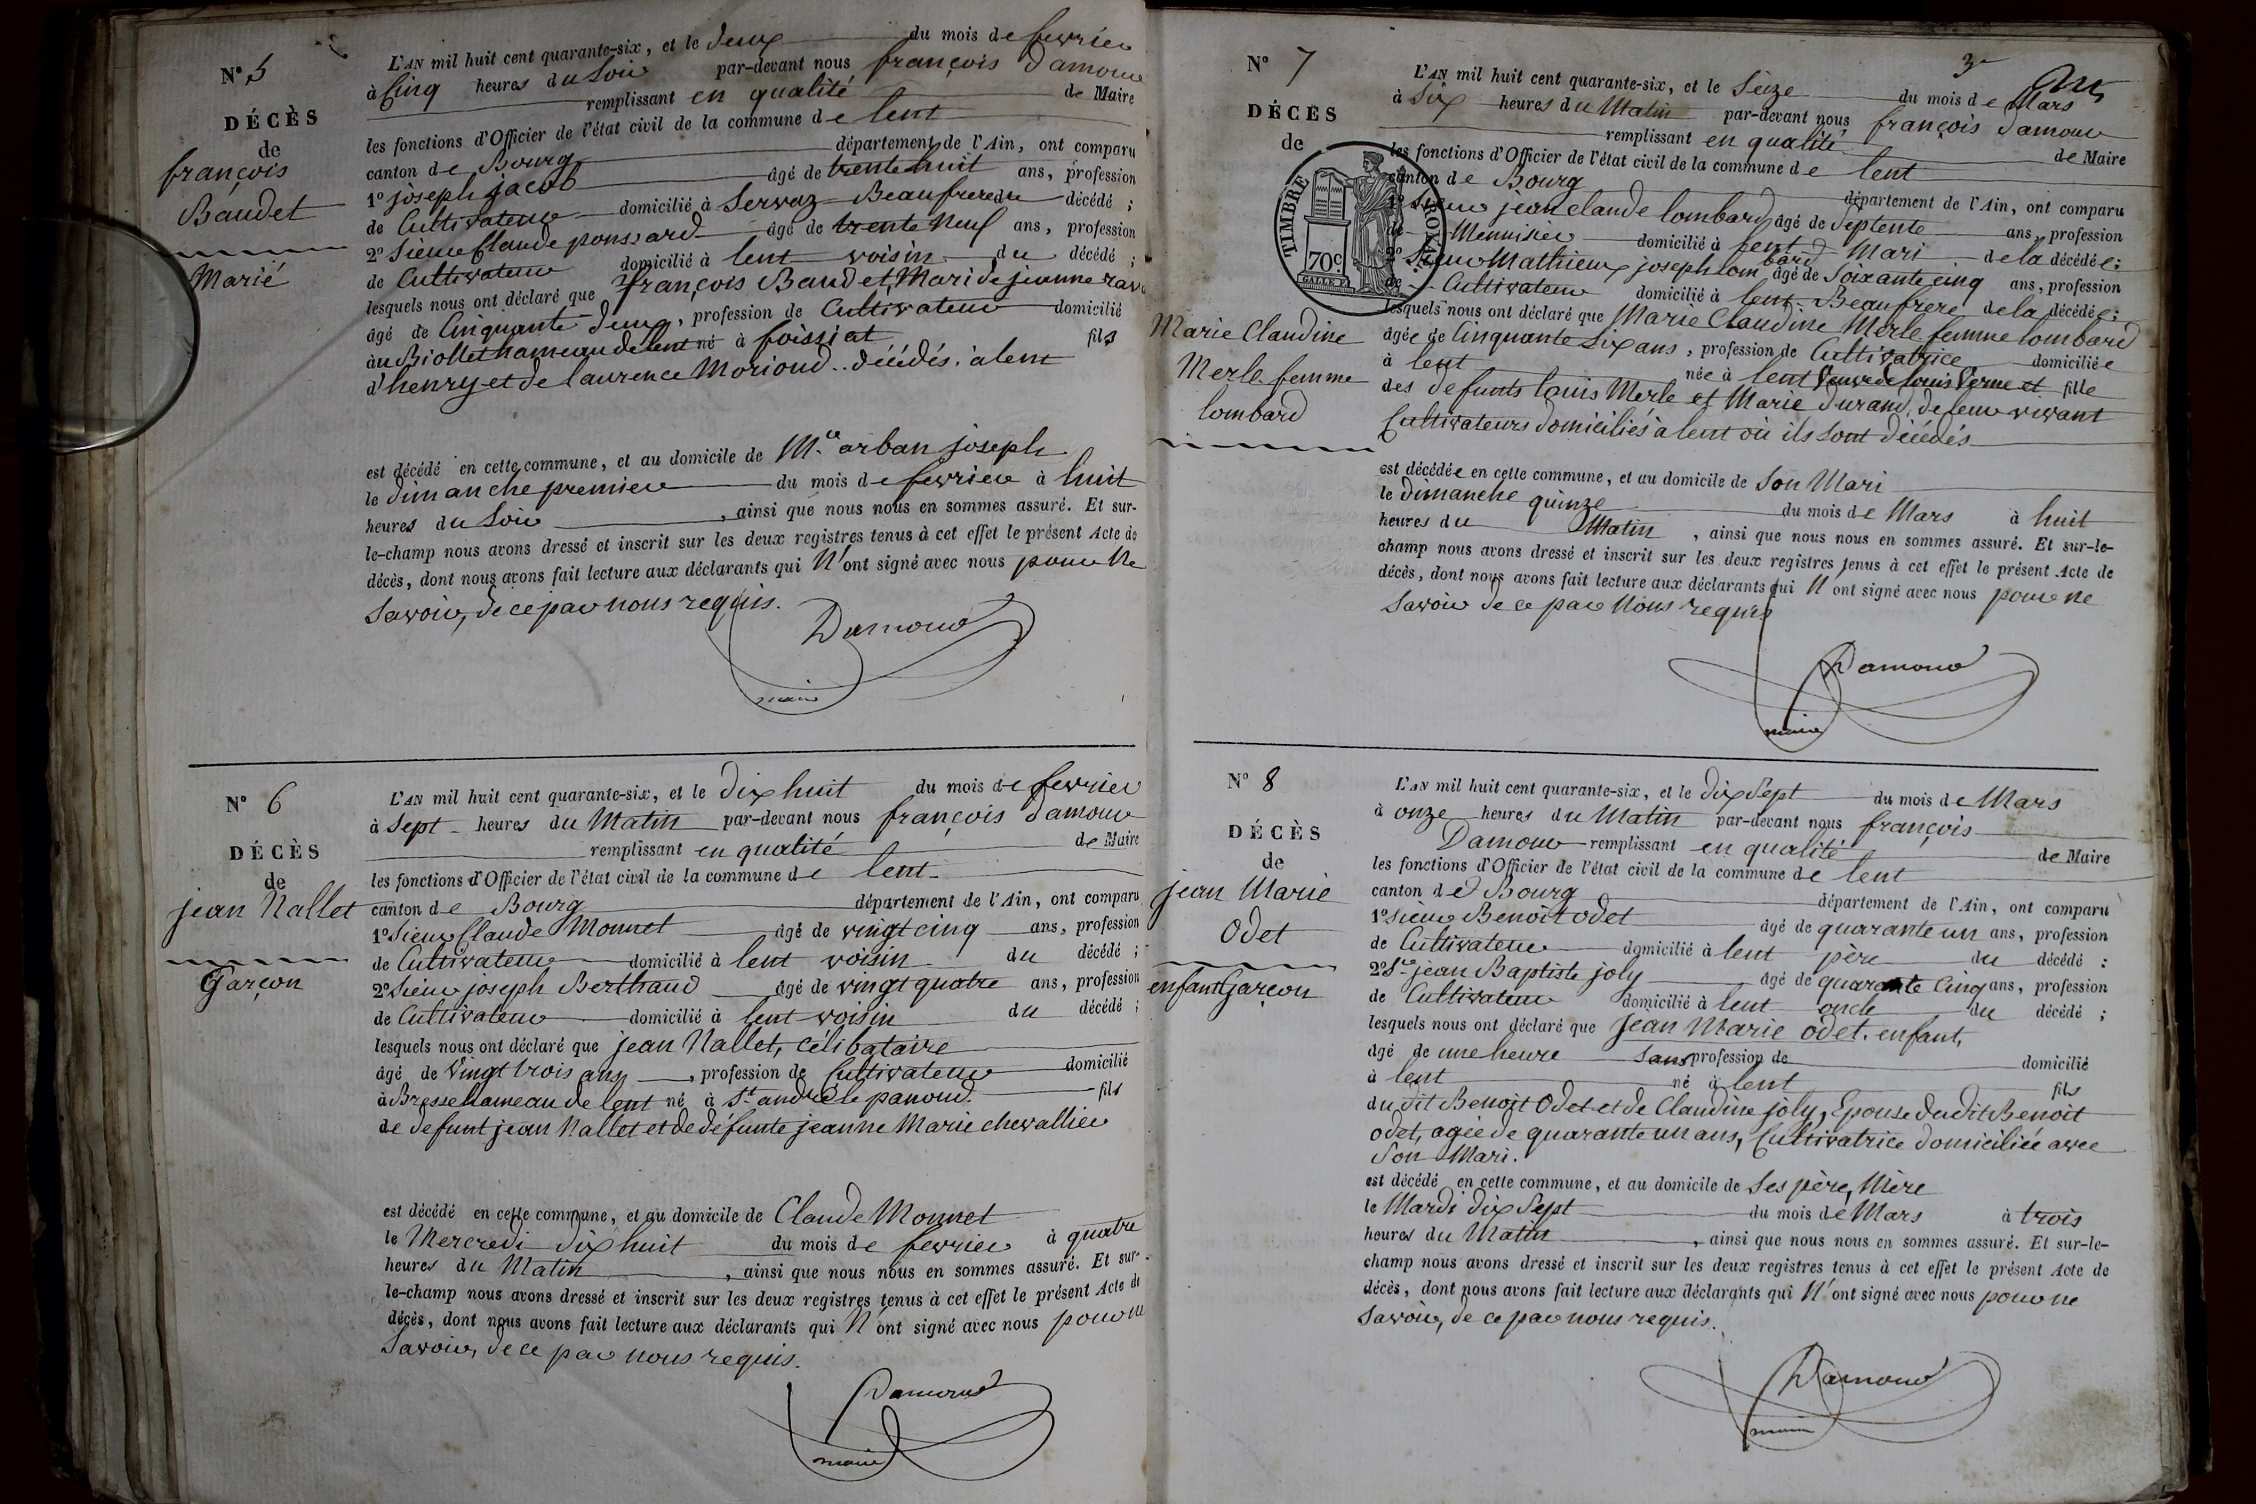 N° 5
DÉCÈS
de
françois
Baudet
Marié
L'AN mil huit cent quarante-six, et le deux du mois de fevrier
à Cinq heures du Soir par-devant nous françois Damour
remplissant en qualité de Maire
les fonctions d'Officier de l'état civil de la commune de lent
canton de Bourg département de l'Ain, ont comparu
1° joseph jacob âgé de trente huit ans, profession
de Cultivateur domicilié à Servaz Beaufrere du décédé ;
2° Sieur Claude ponssard âgé de trente neuf ans, profession
de Cultivateur domicilié à lent voisin du décédé ;
lesquels nous ont déclaré que françois Baudet, Mari de jeanne
âgé de Cinquante deux, profession de Cultivateur domicilié
au Biollet hameau de lent né à foissiat fils
d'henry et de laurence Morioud.. décédés. à lent
est décédé en cette commune, et au domicile de M.ce arban joseph
le dimanche premier du mois de fevrier à huit
heures du Soir, ainsi que nous nous en sommes assuré. Et sur-
le-champ nous avons dressé et inscrit sur les deux registres tenus à cet effet le présent Acte de
décès, dont nous avons fait lecture aux déclarants qui N'ont signé avec nous pour Ne
Savoir, de ce par nous requis.
Damour
maire
N° 6
DÉCÈS
de
jean Nallet
Garçon
L'AN mil huit cent quarante-six, et le dix huit du mois de fevrier
à Sept heures du Matin par-devant nous françois Damour
remplissant en qualité de Maire
les fonctions d'Officier de l'état civil de la commune de lent
canton de Bourg département de l'Ain, ont comparu
1° Sieur Claude Monnet âgé de vingt cinq ans, profession
de Cultivateur domicilié à lent voisin du décédé ;
2° Sieur joseph Berthaud âgé de vingt quatre ans, profession
de Cultivateur domicilié à lent voisin du décédé ;
lesquels nous ont déclaré que jean Nallet, célibataire
âgé de Vingt trois ans, profession de Cultivateur domicilié
à Bresse hameau de lent né à St. andré le panoud. fils
de defunt jean Nallet et de défunte jeanne Marie chevallier
est décédé en cette commune, et au domicile de Claude Monnet
le Mercredi dix huit du mois de fevrier à quatre
heures du Matin, ainsi que nous nous en sommes assuré. Et sur-
le-champ nous avons dressé et inscrit sur les deux registres tenus à cet effet le présent Acte de
décès, dont nous avons fait lecture aux déclarants qui N'ont signé avec nous pour ne
Savoir, de ce par nous requis.
Damour
maire
3e
N° 7
DÉCÈS
de
TIMBRE ROYAL
70c.
Marie Claudine
Merle femme
lombard
L'AN mil huit cent quarante-six, et le Seize du mois de Mars
à Six heures du Matin par-devant nous françois Damour
remplissant en qualité de Maire
les fonctions d'Officier de l'état civil de la commune de lent
canton de Bourg département de l'Ain, ont comparu
1° Sieur jean claude lombard âgé de Septente ans, profession
de Menuisier domicilié à lent Mari de la décédée ;
2° Sieur Mathieu joseph lombard âgé de Soixante cinq ans, profession
de Cultivateur domicilié à lent Beaufrere de la décédée ;
lesquels nous ont déclaré que Marie Claudine Merle femme lombard
agée de Cinquante Six ans, profession de Cultivatrice domiciliée
à lent née à lent Veuve de louis Verne et fille
des defunts louis Merle et Marie durand, de leur vivant
Cultivateurs domiciliés à lent où ils sont décédés
est décédée en cette commune, et au domicile de Son Mari
le Dimanche quinze du mois de Mars à huit
heures du Matin, ainsi que nous nous en sommes assuré. Et sur-le-
champ nous avons dressé et inscrit sur les deux registres tenus à cet effet le présent Acte de
décès, dont nous avons fait lecture aux déclarants qui N'ont signé avec nous pour ne
Savoir de ce par Nous requis
Damour
maire
N° 8
DÉCÈS
de
jean Marie
Odet
enfant Garçon
L'AN mil huit cent quarante-six, et le dix Sept du mois de Mars
à onze heures du Matin par-devant nous françois
Damour remplissant en qualité de Maire
les fonctions d'Officier de l'état civil de la commune de lent
canton de Bourg département de l'Ain, ont comparu
1° Sieur Benoit odet âgé de quarante un ans, profession
de Cultivateur domicilié à lent père du décédé ;
2° Sr jean Baptiste joly âgé de quarante Cinq ans, profession
de Cultivateur domicilié à lent oncle du décédé ;
lesquels nous ont déclaré que jean Marie odet. enfant,
âgé de une heure Sans profession de domicilié
à lent né à lent fils
du dit Benoit Odet et de Claudine joly, Epouse du dit Benoit
odet, agée de quarante un ans, Cultivatrice domiciliée avec
Son Mari.
est décédé en cette commune, et au domicile de Ses père, Mère
le Mardi dix Sept du mois de Mars à trois
heures du Matin, ainsi que nous nous en sommes assuré. Et sur-le-
champ nous avons dressé et inscrit sur les deux registres tenus à cet effet le présent Acte de
décès, dont nous avons fait lecture aux déclarants qui N'ont signé avec nous pour ne
Savoir, de ce par nous requis.
Damour
maire